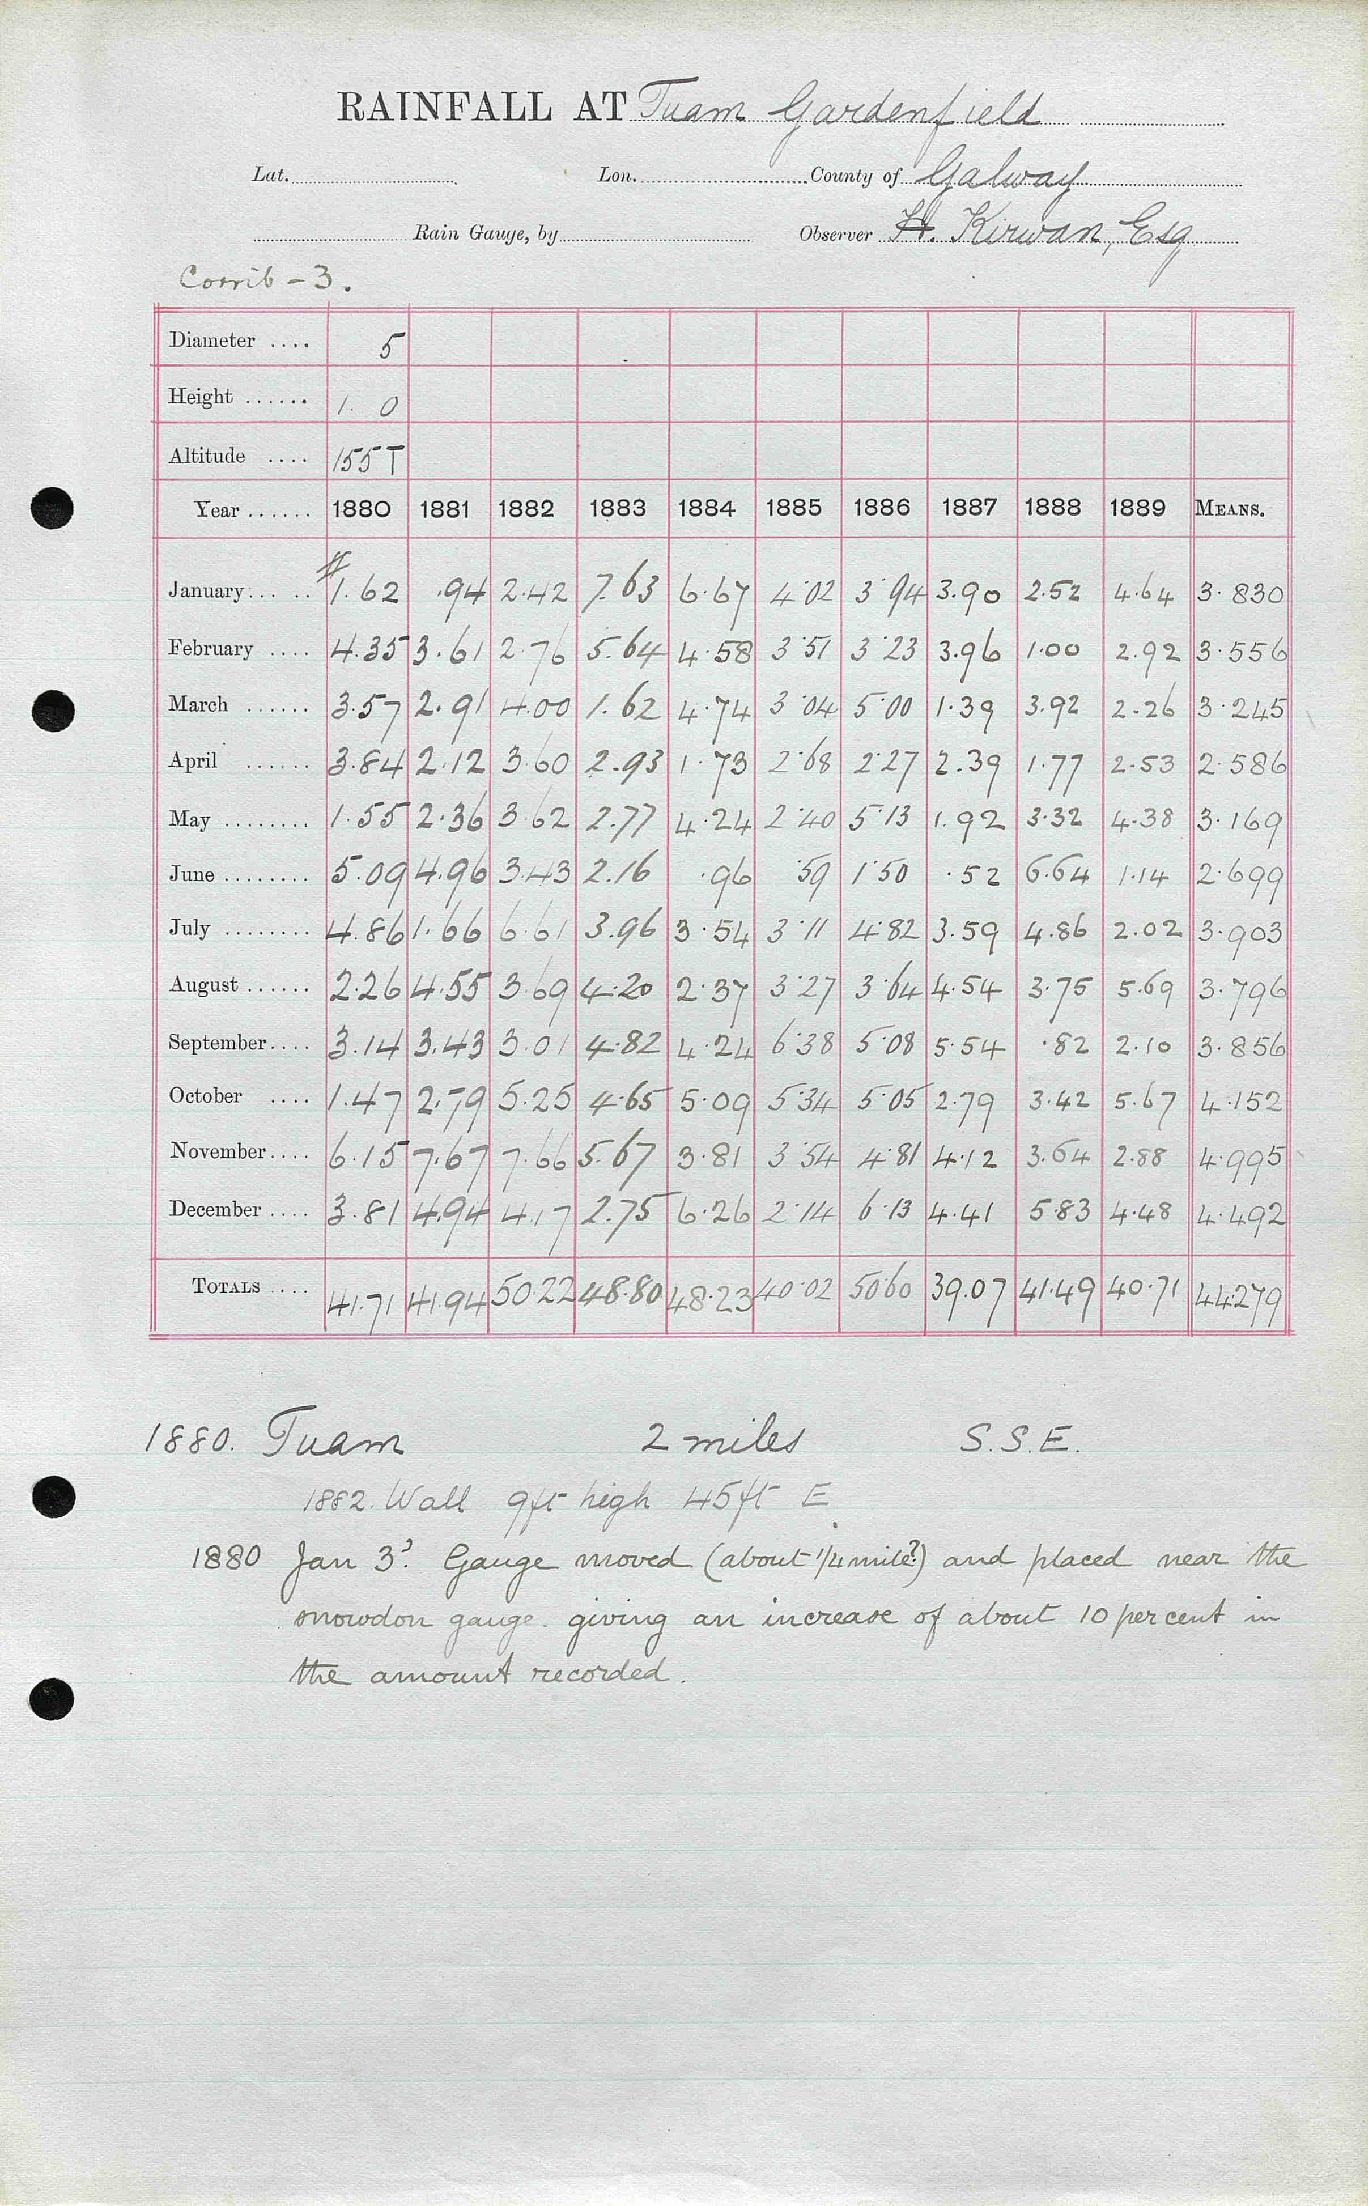 RAINFALL AT Tuam Gardenfield
Lat. Lon. County of Galway
Rain Gauge, by Observer H. Kirwan, Esq
Corrib - 3.
Diameter .... 5
Height ...... 1. 0
Altitude .... 155 T
Year ...... 1880 1881 1882 1883 1884 1885 1886 1887 1888 1889 MEANS.
January... .. #1.62 .94 2.42 7.63 6.67 4.02 3.94 3.90 2.52 4.64 3.830
February .... 4.35 3.61 2.76 5.64 4.58 3.51 3.23 3.96 1.00 2.92 3.556
March ...... 3.57 2.91 4.00 1.62 4.74 3.04 5.00 1.39 3.92 2.26 3.245
April ...... 3.84 2.12 3.60 2.93 1.73 2.68 2.27 2.39 1.77 2.53 2.586
May ........ 1.55 2.36 3.62 2.77 4.24 2.40 5.13 1.92 3.32 4.38 3.169
June ........ 5.09 4.96 3.43 2.16 .96 .59 1.50 .52 6.64 1.14 2.699
July ........ 4.86 1.66 6.61 3.96 3.54 3.11 4.82 3.59 4.86 2.02 3.903
August ...... 2.26 4.55 3.69 4.20 2.37 3.27 3.64 4.54 3.75 5.69 3.796
September.... 3.14 3.43 3.01 4.82 4.24 6.38 5.08 5.54 .82 2.10 3.856
October .... 1.47 2.79 5.25 4.65 5.09 5.34 5.05 2.79 3.42 5.67 4.152
November.... 6.15 7.67 7.66 5.67 3.81 3.54 4.81 4.12 3.64 2.88 4.995
December .... 3.81 4.94 4.17 2.75 6.26 2.14 6.13 4.41 5.83 4.48 4.492
TOTALS .... 41.71 41.94 50.22 48.80 48.23 40.02 50.60 39.07 41.49 40.71 44.279
1880. Tuam 2 miles S.S.E.
1882. Wall 9ft high 45ft E
1880 Jan 3ʳ. Gauge moved (about 1/4 mile?) and placed near the
snowdon gauge. giving an increase of about 10 per cent in
the amount recorded.